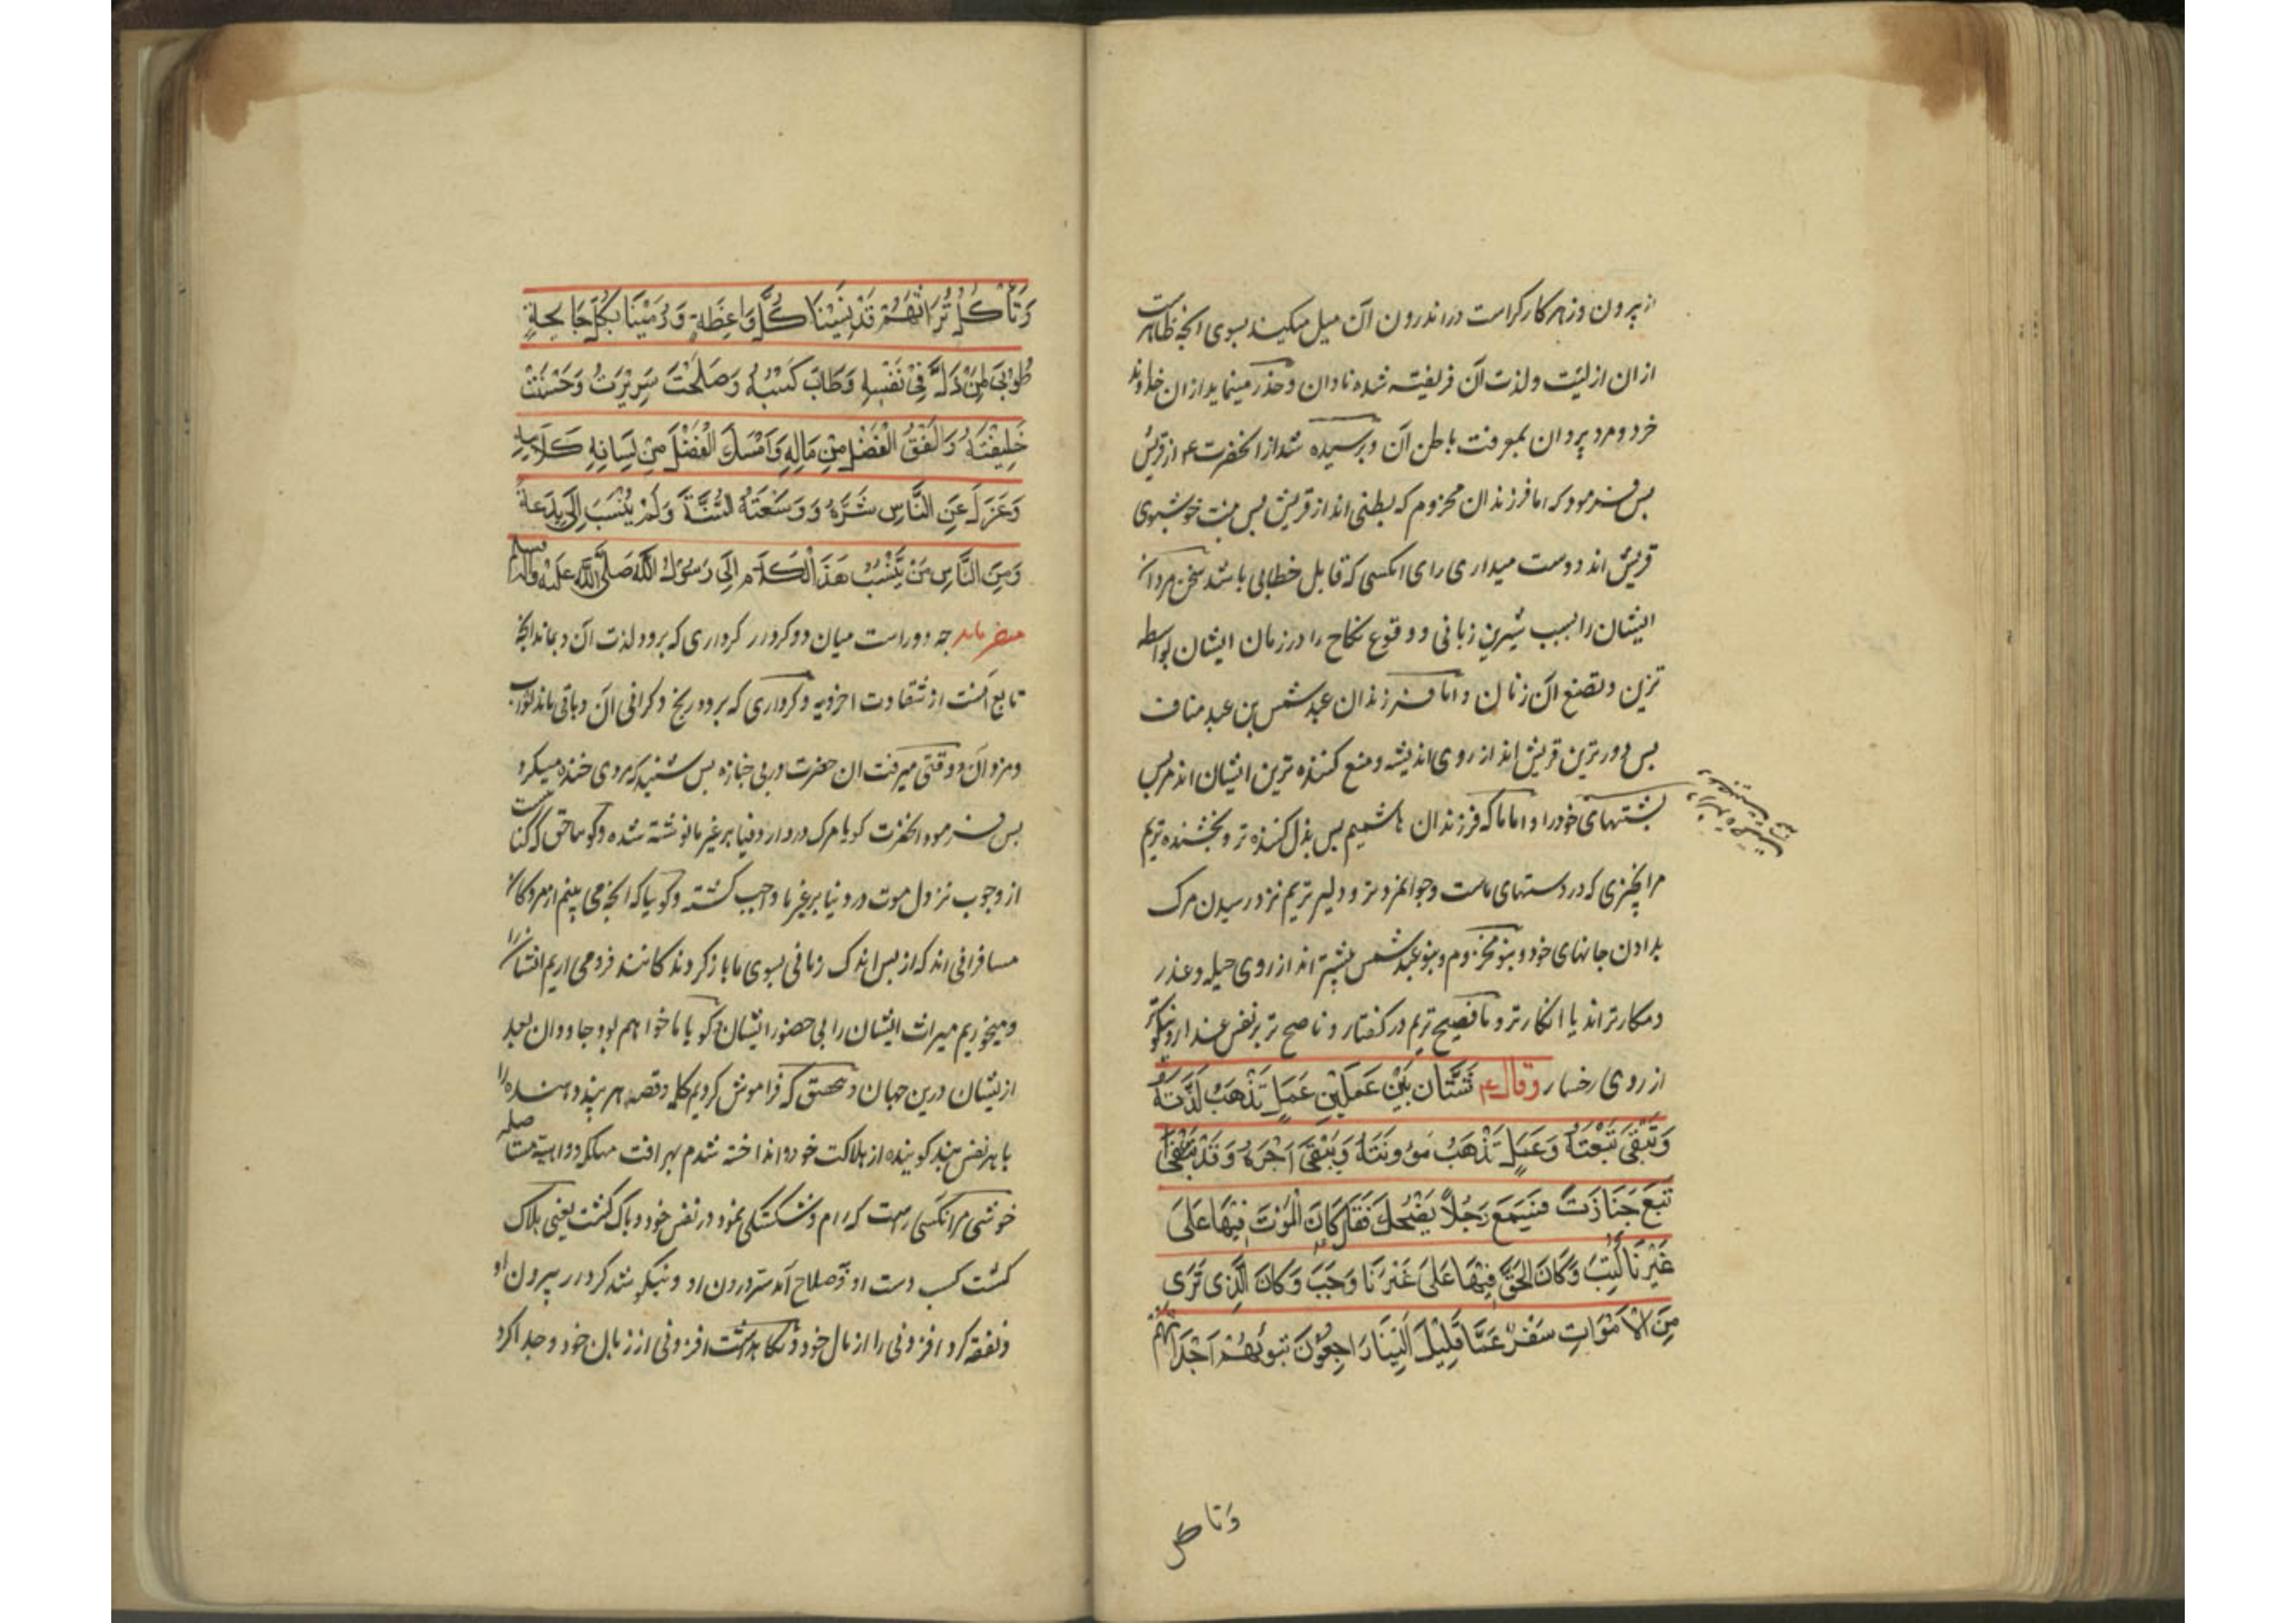 از بیرون و زهر کارکر است در اندرون آن میل میکند بسوی انچه ظاهرست
ازان از لینت و لذت آن فریفته شده نادان و حذر مینماید ازان خداوند
خرد و مرد پردان بمعرفت باطن آن و پرسیده شد از انحضرت ع از قریش
پس فرمود که اما فرزندان مخزوم که بطنی اند از قریش پس خوشبوی
قریش اند دوست میداری رای انکسی که قابل خطابی باشد سخن مردان
ایشان را بسبب شیرین زبانی و وقوع نکاح را در زمان ایشان بواسطه
تزین و تصنع آن زنان و اما فرزندان عبد شمس بن عبد مناف
پس دورترین قریش اند از روی اندیشه و منع کننده ترین ایشان اند مر پس
پشتهای خود را و اما ما که فرزندان هاشمیم پس بذل کننده تر و بخشنده تریم
مر انچیزی که در دستهای ماست و جوانمردتر و دلیرتریم نزد رسیدن مرک
بدادن جانهای خود و بنو مخزوم و بنو عبد شمس بیشتر اند از روی حیله و عذر
و مکارتر اند یا انکارتر و ما فصیح تریم در کفتار و ناصح تر بر نفس غدار و نیکوتر
از روی رخسار وقال ع شَتَّان بَيْنَ عَمَلَيْنِ عَمَلٍ تَذْهَبُ لَذَّتُهُ
وَتَبْقَى تَبْعَتُهُ وَعَمَلٍ تَذْهَبُ مَؤُونَتُهُ وَيَبْقَى اَجْرُهُ وَقَدْ
تَبِعَ جَنَازَةً فَسَمِعَ رَجُلًا يَضْحَكُ فَقَالَ كَانَ الْمَوْتَ فِيهَا عَلَى
غَيْرِنَا كُتِبَ وَكَانَ الْحَقَّ فِيهَا عَلَى غَيْرِنَا وَجَبَ وَكَانَ الَّذِي نَرَى
مِنَ الْاَمْوَاتِ سَفْرٌ عَمَّا قَلِيْلٍ اِلَيْنَا رَاجِعُوْنَ نُبَوِّئُهُمْ اَجْدَاثَهُمْ
وَتاکل
وَتَأْكُلُ تُرَاثَهُمْ قَدْ نَسِيْنَا كُلَّ وَاعِظَةٍ وَرُمِيْنَا بِكُلِّ جَائِحَةٍ
طُوْبَى لِمَنْ ذَلَّ فِيْ نَفْسِهِ وَطَابَ كَسْبُهُ وَصَلَحَتْ سَرِيْرَتُهُ وَحَسُنَتْ
خَلِيْقَتُهُ وَاَنْفَقَ الْفَضْلَ مِنْ مَالِهِ وَاَمْسَكَ الْفَضْلَ مِنْ لِسَانِهِ
وَعَزَلَ عَنِ النَّاسِ شَرَّهُ وَوَسِعَتْهُ السُّنَّةُ وَلَمْ يُنْسَبْ اِلَى بِدْعَةٍ
وَمِنَ النَّاسِ مَنْ يَنْسُبُ هَذَا الْكَلَامَ اِلَى رَسُوْلِ اللَّهِ صَلَّى اللَّهُ عَلَيْهِ وَآلِهِ وسلم
میفرماید چه دور است میان دو کردار کرداری که برود لذت آن و بماند انچه
تابع آنست از شقاوت اخرویه و کرداری که برود رنج و کرانی آن و باقی ماند ثواب
و مزد آن و وقتی میرفت ان حضرت در پی جنازه پس شنید که مردی خنده میکرد
پس فرمود انحضرت کویا مرک در دار دنیا بر غیر ما نوشته شده و کویا حق که کنایتست
از وجوب نزول موت در دنیا بر غیر ما واجب کشته و کویا که انچه می بینم از مردکان
مسافرانی اند که از پس اندک زمانی بسوی ما باز کردندکانند فرو می اریم ایشانرا
و میخوریم میراث ایشان را بی حضور ایشان کویا ما خواهیم بود جاودان بعد
ازیشان درین جهان و بتحقیق که فراموش کردیم کلمه و قصه هر پند دهنده را
یا هر نفس پند کوینده از هلاکت خود و انداخته شدم بهر افت مهلکه و داهیه مستاصله
خوشی مر انکسی راست که رام و شکستکی نمود در نفس خود و پاک کشت یعنی پاک
کشت کسب دست او و بصلاح آمد سر درون او و نیکو شد کردار بیرون او
و نفقه کرد افزونی را از مال خود و نکاهداشت افزونی از زبان خود و جدا کرد